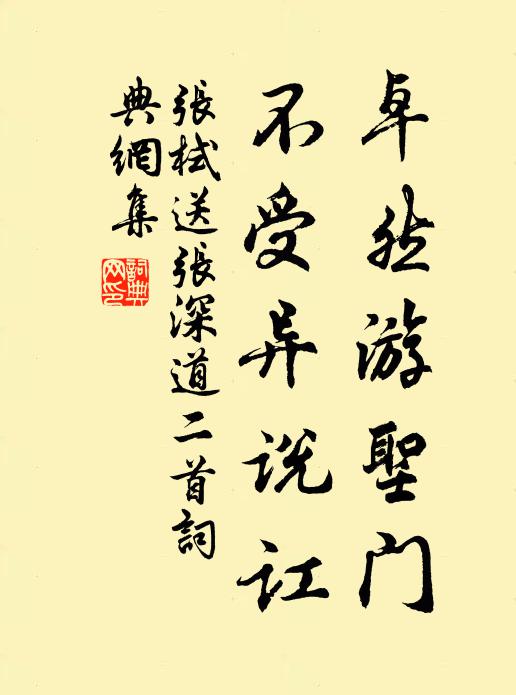 卓然游聖門
不受异説訌
張栻送張深道二首詞
典網集
詞典
网印